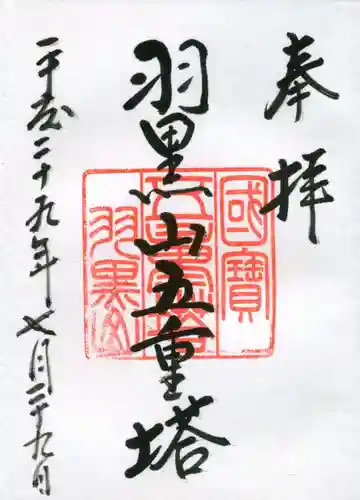 奉拝
羽黒山五重塔
平成二十九年七月二十九日
國寶
五重塔
羽黒山